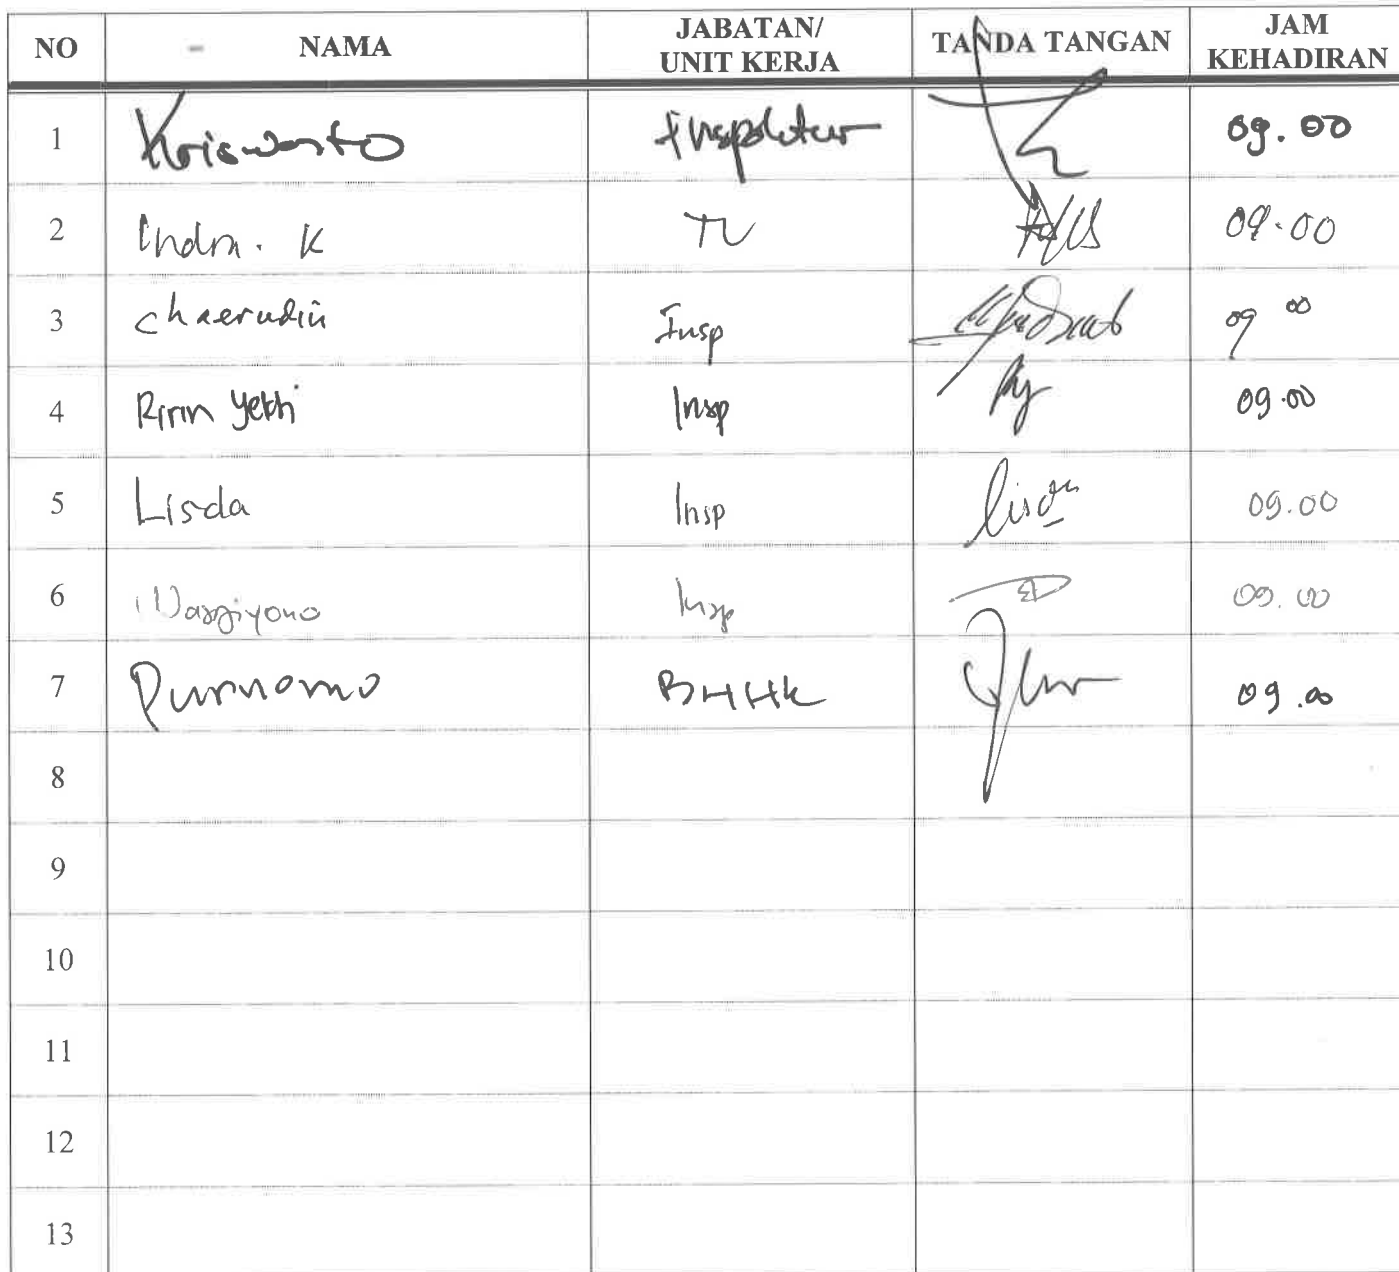 NO NAMA JABATAN/ UNIT KERJA TANDA TANGAN JAM KEHADIRAN
1 Kriswanto Inspektur 09.00
2 Indra. K TU 09.00
3 Chaerudin Insp 09 00
4 Ririn Yekti Insp 09.00
5 Lisda Insp lisda 09.00
6 Wargiyono Insp 09.00
7 Purnomo BHHK 09.00
8
9
10
11
12
13